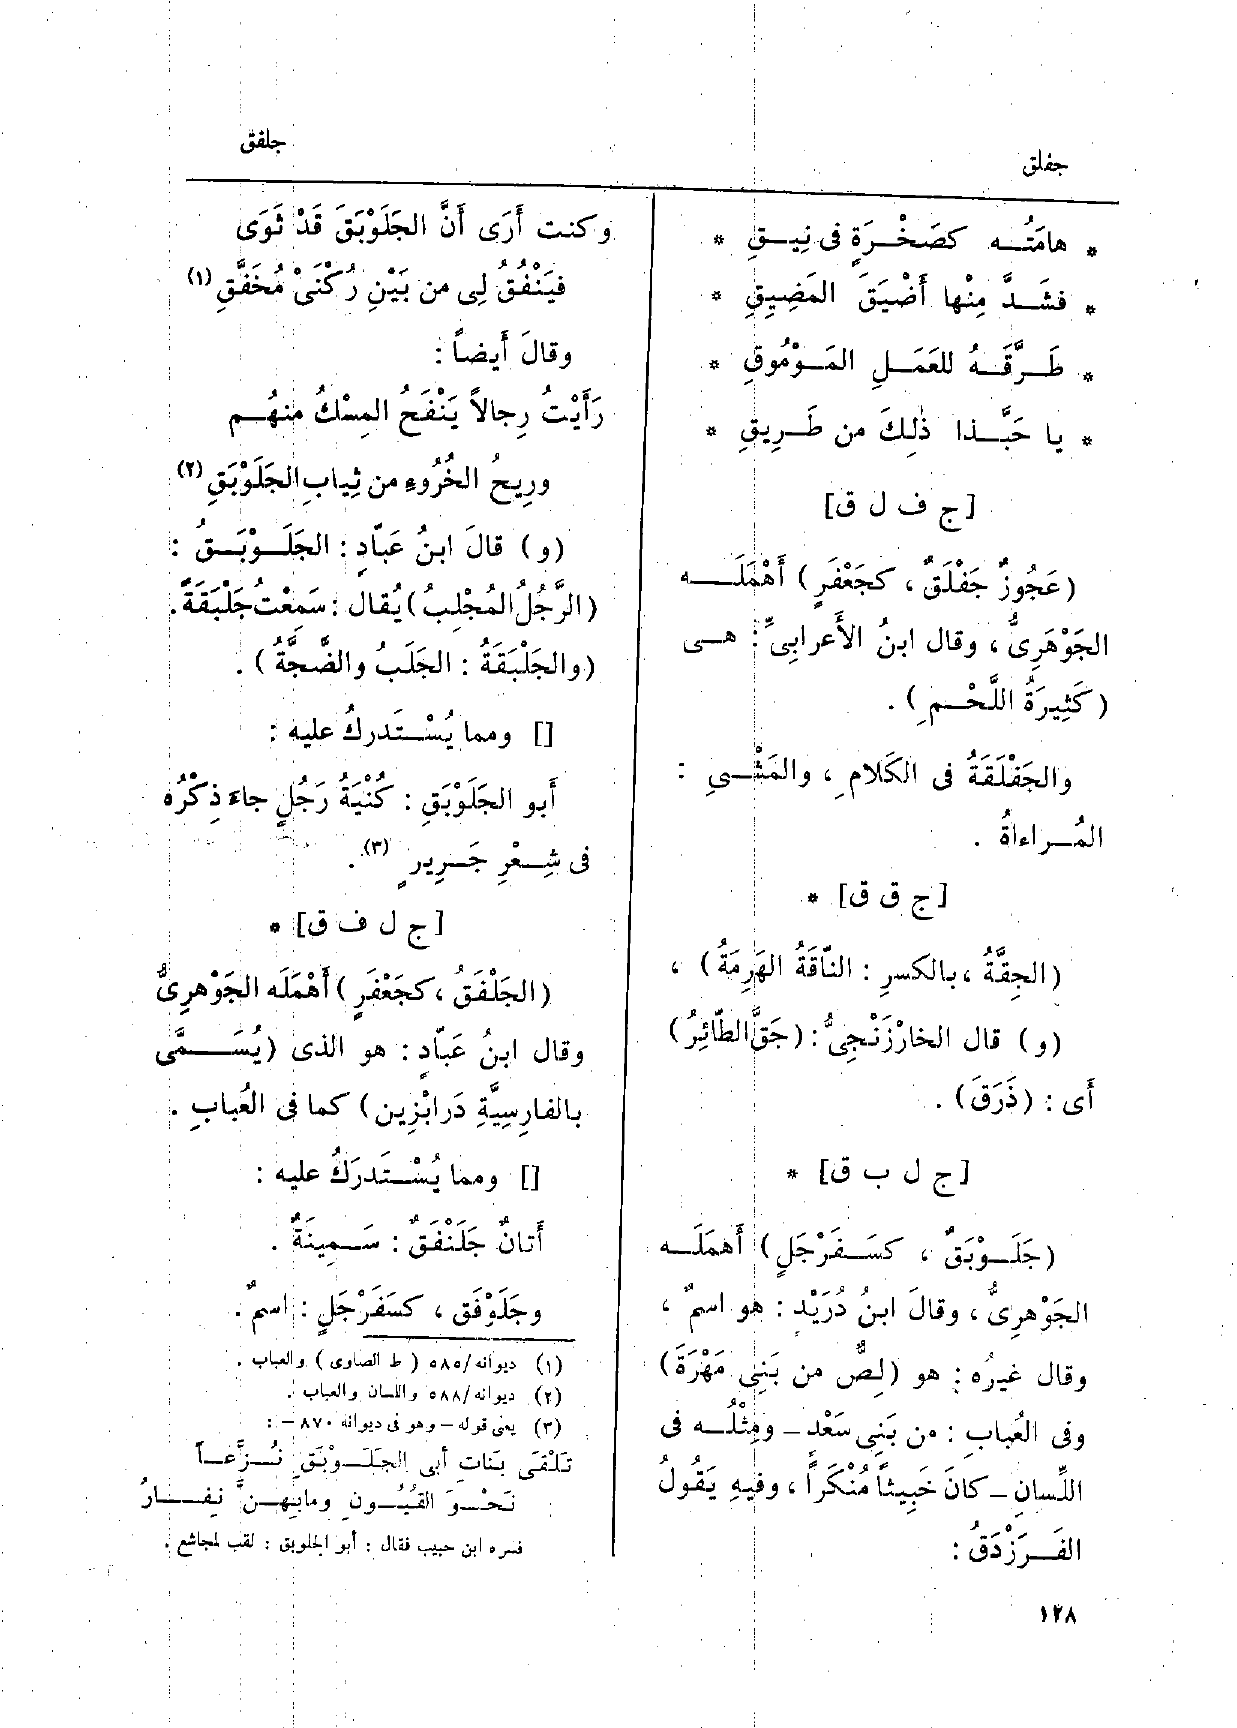 جفلق
جلفق
* هامَتُـــه كصَخْـرَةٍ فى نِيــقِ *
* فشَــدَّ مِنْها أَضْيَقَ المَضِيقِ *
* طَــرَّقَــهُ للعَمَــلِ المَــوْمُوقِ *
* يا حَبَّــذا ذٰلِكَ من طَــرِيقِ *
[ج ف ل ق]
(عَجُوزٌ جَفْلَقٌ ، كجَعْفَرٍ) أَهْمَلَــه
الجَوْهَرِىُّ ، وقال ابنُ الأَعرابِىِّ : هــى
(كَثِيرَةُ اللَّحْــمِ) .
والجَفْلَقَةُ فى الكَلامِ ، والمَشْــىِ :
المُــراءاةُ .
[ج ق ق] *
(الحِقَّةُ ، بالكسرِ : النّاقَةُ الهَرِمَةُ) ،
(و) قال الخارْزَنْجِىُّ : (جَقَّ الطّائِرُ)
أَى : (ذَرَقَ) .
[ج ل ب ق] *
(جَلَــوْبَقٌ ، كسَــفَرْجَلٍ) أَهمَلَــه
الجَوْهرِىُّ ، وقالَ ابنُ دُرَيْدٍ : هو اسمٌ ،
وقال غيرُه : هو (لِصٌّ من بَنِى مَهْرَةَ)
وفى العُبابِ : من بَنِى سَعْد - ومِثْلُــه فى
اللِّسانِ - كانَ خَبِيثاً مُنْكَراً ، وفيهِ يَقُولُ
الفَــرَزْدَقُ :
وكنت أَرَى أَنَّ الجَلَوْبَقَ قَدْ ثَوَى
فيَنْفُقُ لِى من بَيْنِ رُكْنَىْ مُخَفَّقِ (١)
وقالَ أَيضاً :
رَأَيْتُ رِجالاً يَنْفَحُ المِسْكُ منهُــم
ورِيحُ الخُرُوءِ من ثِيابِ الجَلَوْبَقِ (٢)
(و) قالَ ابنُ عَبّادٍ : الجَلَــوْبَــقُ :
(الرَّجُلُ المُجْلِبُ) يُقال : سَمِعْت جَلْبَقَةً .
(والجَلْبَقَةُ : الجَلَبُ والضَّجَّةُ) .
[] ومما يُسْــتَدركُ عليه :
أَبو الجَلَوْبَقِ : كُنْيَةُ رَجُلٍ جاءَ ذِكْرُه
فى شِــعْرِ جَــرِيرٍ (٣) .
[ج ل ف ق] *
(الجَلْفَقُ ، كجَعْفَرٍ) أَهْمَلَه الجَوْهرِىُّ
وقال ابنُ عَبّادٍ : هو الذى (يُسَــمَّى
بالفارِسِيَّةِ دَرابْزِين) كما فى العُبابِ .
[] ومما يُسْــتَدرَكُ عليه :
أَتانٌ جَلَنْفَقٌ : سَــمِينَةٌ .
وجَلَوْفَق ، كسَفَرْجَلٍ : اسمٌ .
(١) ديوانه/٥٨٥ (ط الصاوى) والعباب .
(٢) ديوانه/٥٨٨ واللسان والعباب .
(٣) يعنى قوله - وهو فى ديوانه ٨٧٠ - :
تَلْقَى بَنَاتِ أبى الجَلَــوْبَقِ نُــزَّعــاً
نَحْــوَ القُيُــونِ ومابِهِــنَّ نِفــارُ
فسره ابن حبيب فقال : أبو الجلوبق : لقب لمجاشع .
١٢٨